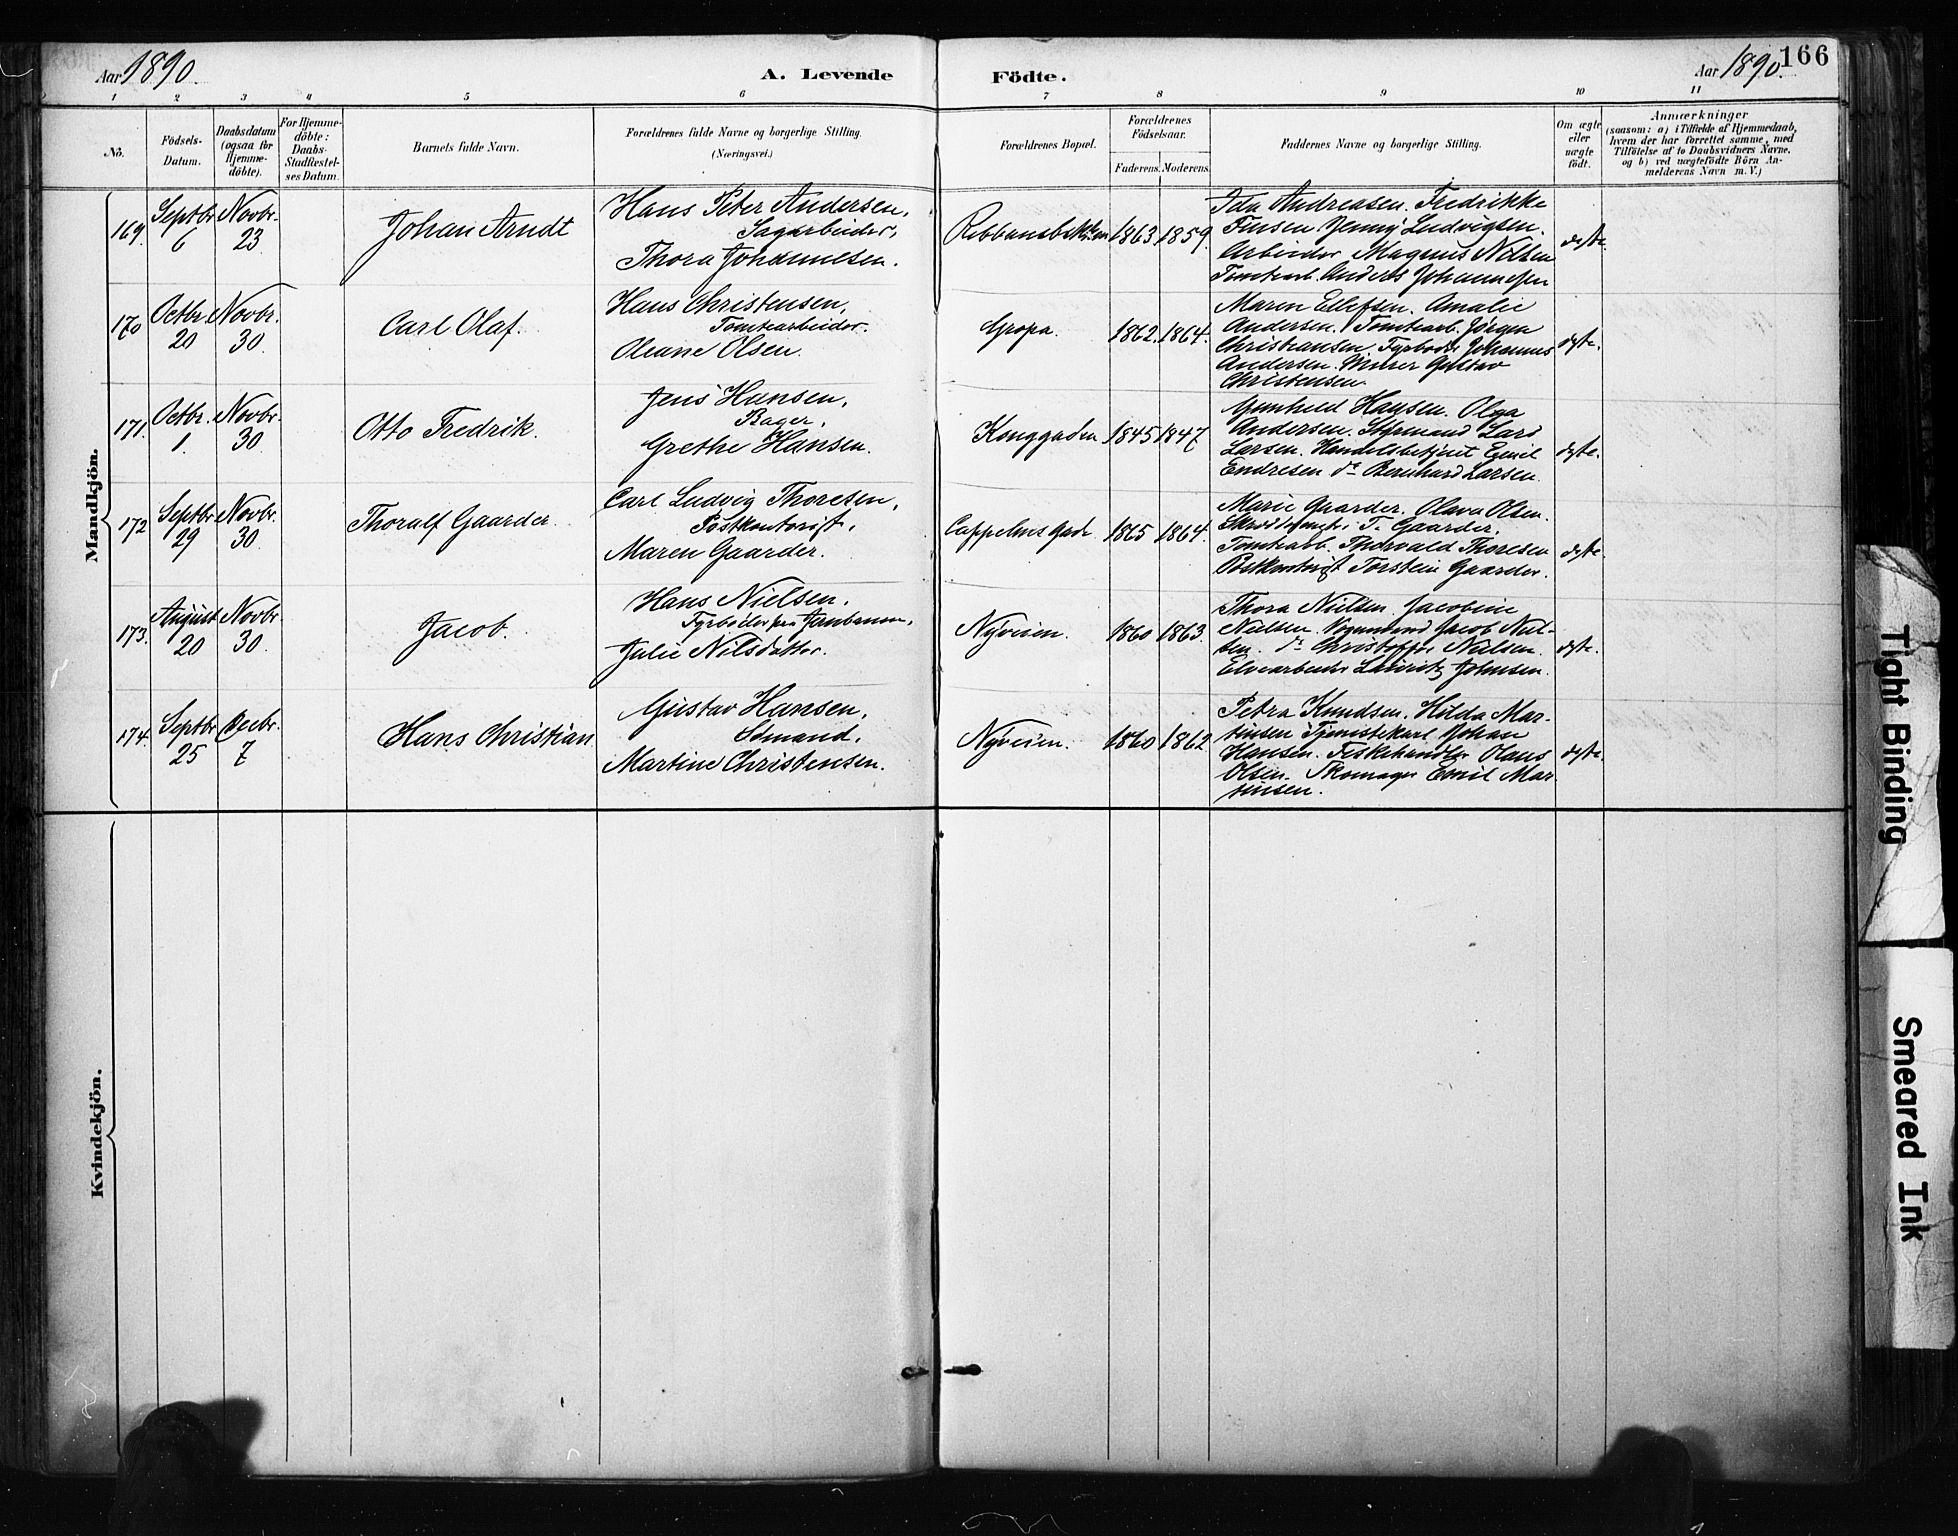 Aar 1890. A. Levende Födte. Aar 1890. 166
1 2 3 4 5 6 7 8 9 10 11
No.
Födsels-
Datum.
Daabsdatum
(ogsaa for
Hjemme-
döbte).
For Hjemme-
döbte:
Daabs-
Stadfæstel-
ses Datum.
Barnets fulde Navn.
Forældrenes fulde Navne og borgerlige Stilling.
(Næringsvei.)
Forældrenes Bopæl.
Forældrenes
Födselsaar.
Faderens. Moderens.
Faddernes Navne og borgerlige Stilling.
Om ægte
eller
uægte
födt.
Anmærkninger
(saasom: a) i Tilfælde af Hjemmedaab,
hvem der har forrettet samme, med
Tilföielse af to Daabsvidners Navne,
og b) ved uægtefödte Börn An-
melderens Navn m. V.)
Mandkjön.
169.
Septbr
6
Novbr.
23.
Johan Arndt
Hans Peter Andersen,
Sagarbeider,
Thora Johannesen.
1863 1859.
Ida Andreasen. Fredrikke
Finsen Jenny Ludvigsen.
Arbeider Magnus Nilsen
Tomtearb. Anders Johannesen
170
Octbr.
20
Novbr.
30.
Carl Olaf.
Hans Christensen,
Tomtearbeider.
Oleane Olsen.
Gropa. 1862. 1864.
Maren Ellefsen. Amalie
Andersen. Tomtearb. Jörgen
Christiansen. Fyrböder Johannes
Andersen. Murer Gustav
Christensen.
171.
Octbr.
1.
Novbr.
30
Otto Fredrik.
Jens Hansen,
Bager,
Grethe Hansen.
Konggaden 1845 1847
Gunhild Hansen. Olga
Andersen. Styrmand Lars
Larsen. Handelsbetjent Emil
Endresen do Bernhard Larsen.
172
Septbr
29
Novbr.
30.
Thoralf Gaarder.
Carl Ludvig Thoresen,
Postkontorist,
Maren Gaarder.
Cappelens Gade. 1865 1864.
Marie Gaarder. Olava Olsen.
T. Gaarder.
Tomtearb. Thorvald Thoresen
Postkontorist Torstein Gaarder.
173.
August
20
Novbr.
30.
Jacob.
Hans Nielsen.
Fyrböder paa Jernbanen,
Julie Nilsdatter.
Nyveien. 1860 1863.
Thora Nielsen. Jacobine
Nielsen. Vognmand Jacob Niel-
sen. do Christoffer Nielsen.
Elvearbeider Lauritz Johnsen.
174.
Septbr
25
Decbr.
7
Hans Christian
Gustav Hansen,
Sömand,
Martine Christensen.
Nyveien. 1860 1862
Petra Knudsen. Hilda Mar-
tinsen Tjenestekarl Johan
Hansen. Fiskehandler Olaus
Olsen. Skomager Emil Mar
tinsen.
Kvindekjön.
Tight Binding
Smeared Ink